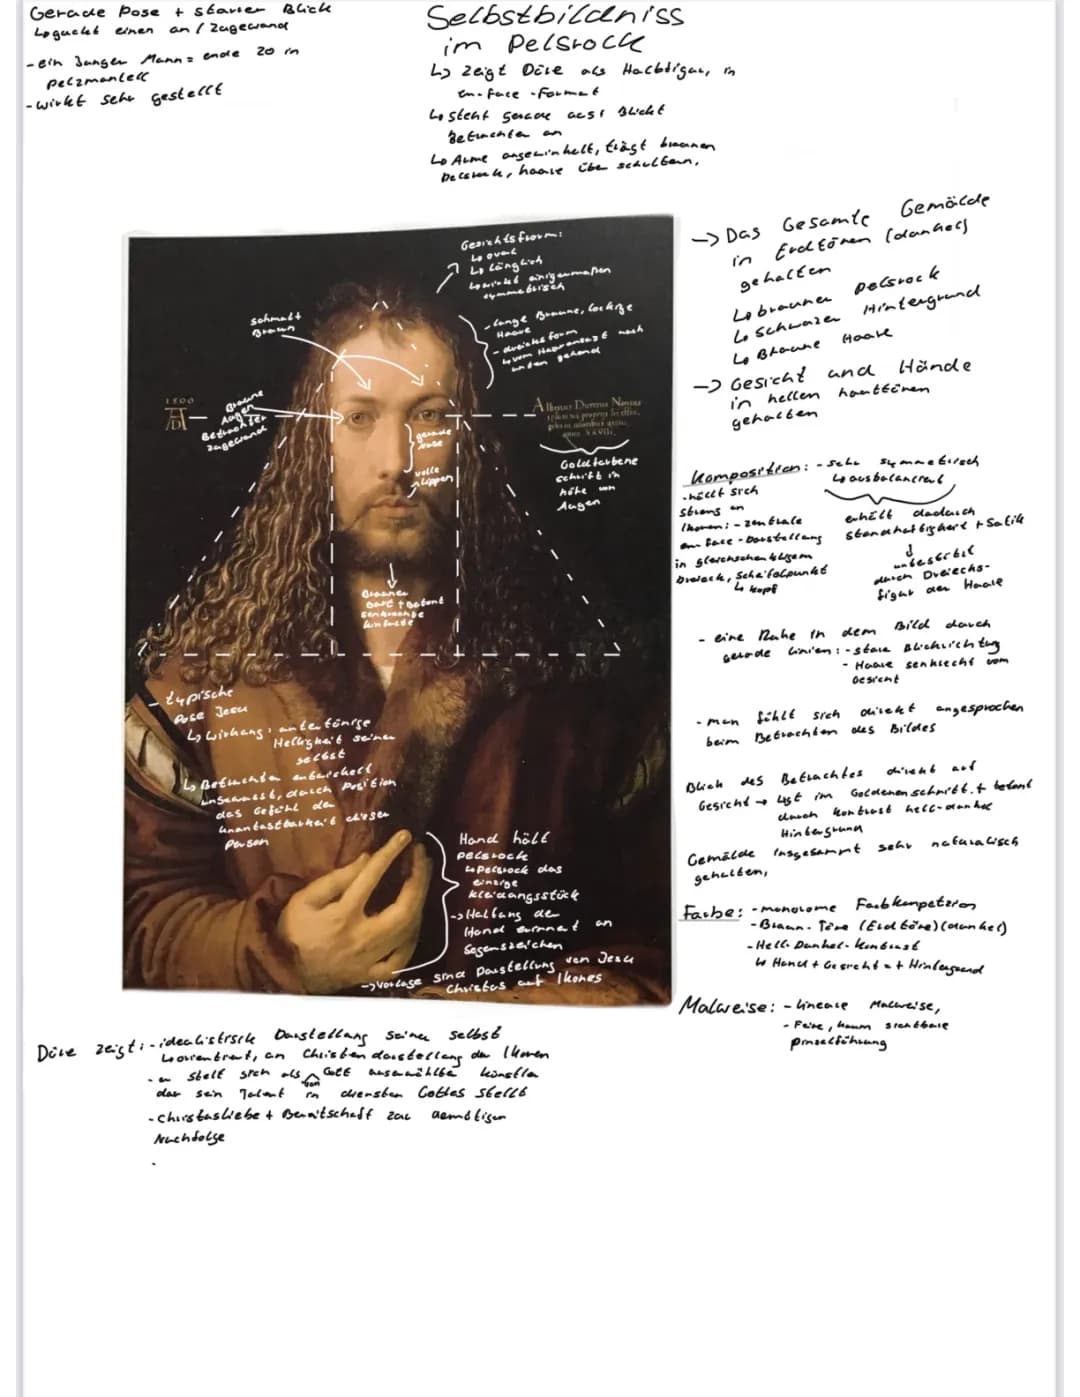 Gerade Pose + starrer Blick
↳ guckt einen an / zugewand
- ein Junger Mann = ende 20 in
pelzmantell
- wirkt sehr gestellt
Selbstbildniss
im Pelsrock
↳ zeigt Düre als Halbfigur, in
en-face-Format
↳ steht gerade aus, Blickt
Betrachter an
↳ Arme angewinkelt, trägt braunen
Pelsrock, haare über schultern.
→ Das Gesamte Gemälde
in Erdtönen (dunkel)
gehalten
↳ brauner pelsrock
↳ Schwarzer Hintergrund
↳ Braune Haare
→ Gesicht und Hände
in hellen hauttönen
gehalten
Gesichtsform:
↳ oval
↳ länglich
↳ wirkt einigermaßen
symmetrisch
schmal +
Braun
- lange Braune, lockige
Haare
- dreiecksform
↳ vom Haaransatz nach
unten gehend
1500
AD
Braune
Augen
Betrachter
zugewand
gerade
nase
volle
Lippen
Albertus Durerus Noricus
ipsum me propriis sic effin-
gebam coloribus aetatis
anno XXVIII.
Goldfarbene
schrift in
höhe von
Augen
Brauner
Bart + betont
senkrechte
Kopf: Komposition: - sehr symmetrisch
↳ ausbalanciert
- hällt sich
streng an
Ikonen: - zentrale
en face - Darstellung
in gleichschenkligem
Dreieck, Scheitelpunkt
↳ kopf
erhält dadurch
standhaftigkeit +
↓
unterstützt
durch Dreiecks-
figur der Haare
- eine Ruhe in dem Bild durch
gerade linien: - stare Blickrichtung
- Haare senkrecht vom
Gesicht
- man fühlt sich direkt angesprochen
beim Betrachten des Bildes
Blick des Betrachtes direkt auf
Gesicht → liegt im Goldenen schnitt. + betont
durch kontrast hell-dunkel
Hintergrund
Gemälde insgesammt sehr naturalisch
gehalten,
- typische
Pose Jesu
↳ Wirkung:
Helligkeit seiner
selbst
↳ Betrachter entwickelt
unbewusst, durch Position
das Gefühl der
unantastbarkeit dieser
Person
Hand hält
pelsrock
↳ Pelsrock das
einzige
kleidungsstück
→ Haltung der
Hand erinnert an
Segenszeichen
→ Vorlage sind Darstellung von Jesu
Christus auf Ikones
Farbe: - monocrome Farbkompetzion
- Braun-Töne (Erdtöne) (dunkel)
- Hell-Dunkel-kontrast
↳ Hand + Gesicht ↔ Hintergrund
Malweise: - lineare Malweise,
- Feine, kaum sichtbare
pinselführung
Düre zeigt: - idealistrsche Darstellung seiner selbst
↳ orientiert, an Christendarstellung der Ikonen
- er stellt sich als von Gott auserwählte künstler
dar sein Talent in diensten Gottes stellt
- Christusliebe + Bereitschaft zur demütigen
Nachfolge